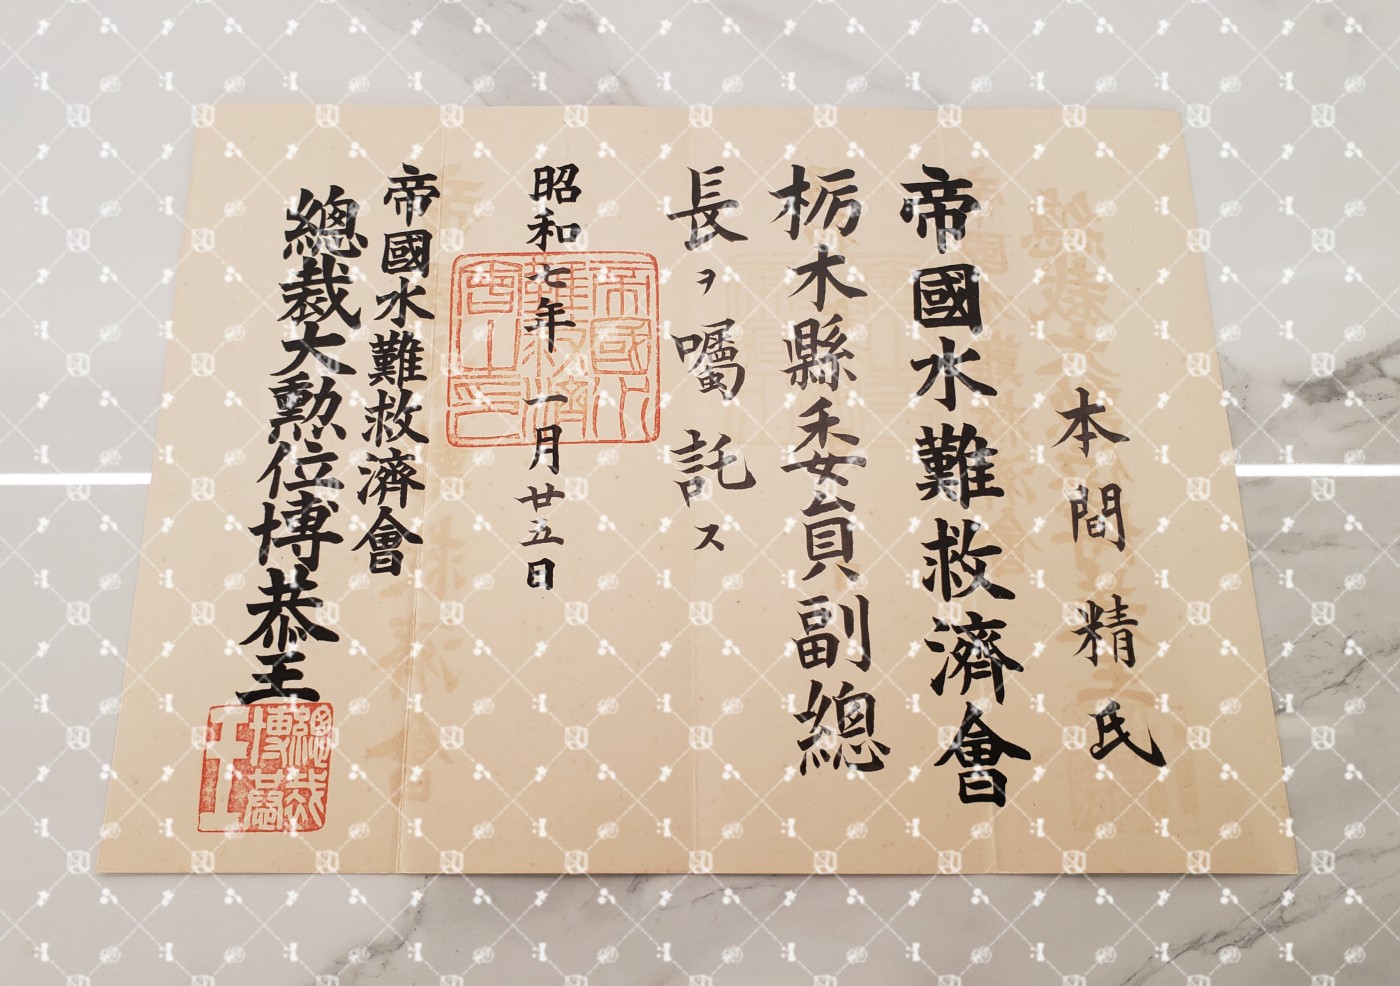 本間精一氏
帝國水難救濟會
栃木縣委員副總
長ヲ囑託ス
昭和七年一月廿五日
帝國水難救濟會
總裁大勲位博恭王
帝國水難救濟會之印
總裁博恭王